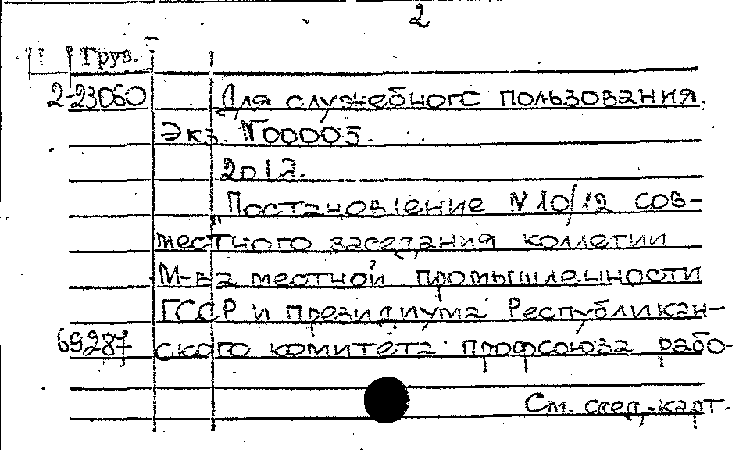 2
Груз.
2-23060 Для служебного пользования.
Экз. N00005.
2012.
Постановление N 10/12 сов-
местного заседания коллегии
М-ва местной промышленности
ГССР и президиума Республикан-
69287 ского комитета профсоюза рабо-
См. след. карт.